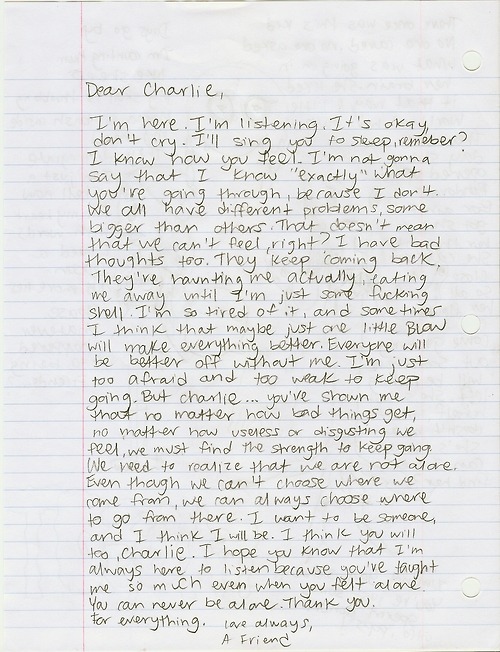 Dear Charlie,
I'm here. I'm listening. It's okay,
don't cry. I'll sing you to sleep, remeber?
I know how you feel. I'm not gonna
say that I know "exactly" what
you're going through, because I don't.
We all have different problems, some
bigger than others. That doesn't mean
that we can't feel, right? I have bad
thoughts too. They keep coming back.
They're haunting me actually, eating
me away until I'm just some fucking
shell. I'm so tired of it, and sometimes
I think that maybe just one little Blow
will make everything better. Everyone will
be better off without me. I'm just
too afraid and too weak to keep
going. But charlie... you've shown me
that no matter how bad things get,
no matter how useless or disgusting we
feel, we must find the strength to keep gang.
We need to realize that we are not alone.
Even though we can't choose where we
come from, we can always choose where
to go from there. I want to be someone,
and I think I will be. I think you will
too, Charlie. I hope you know that I'm
always here to listen because you've taught
me so much even when you felt alone.
You can never be alone. Thank you.
For everything. love always,
A Friend